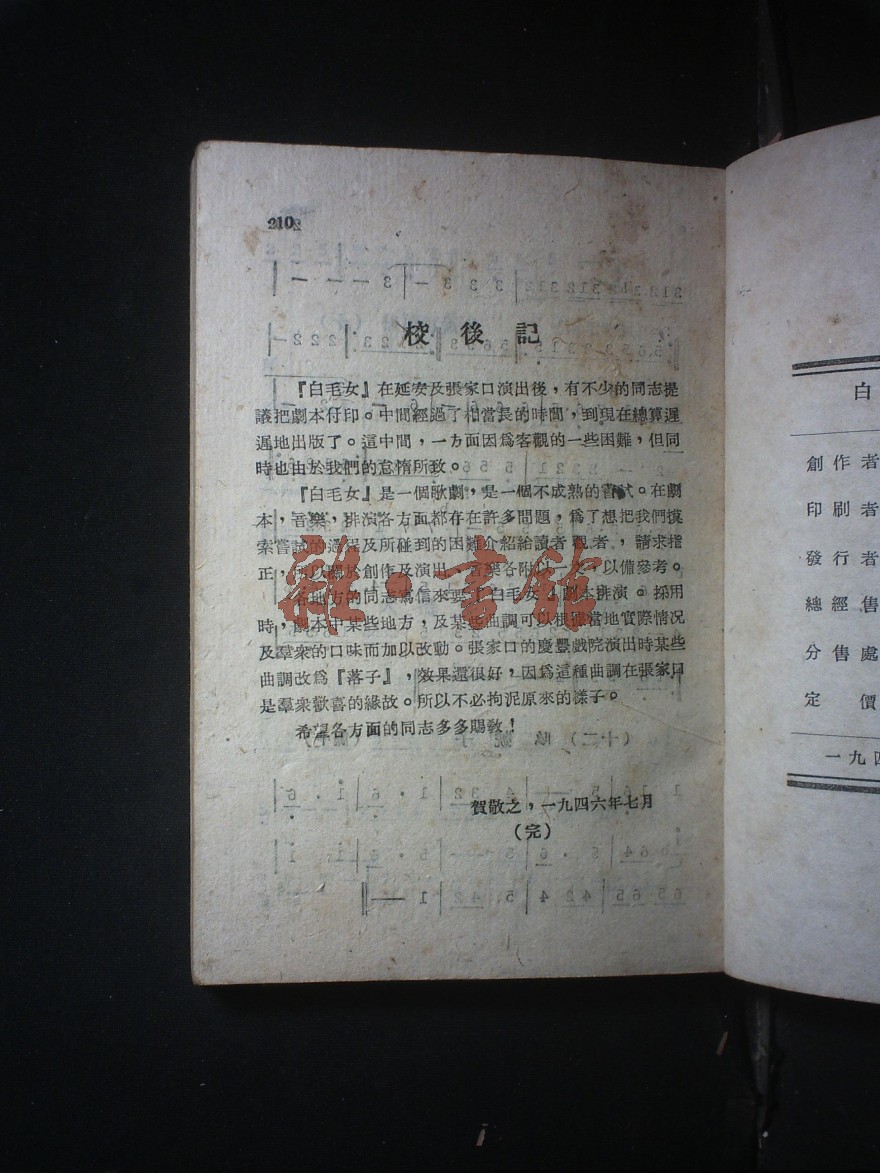 210
校後記
『白毛女』在延安及張家口演出後，有不少的同志提
議把劇本付印。中間經過了相當長的時間，到現在總算遲
遲地出版了。這中間，一方面因爲客觀的一些困難，但同
時也由於我們的怠惰所致。
『白毛女』是一個歌劇，是一個不成熟的嘗試。在劇
本，音樂，排演各方面都存在許多問題，爲了想把我們摸
索嘗試的過程及所碰到的困難介紹給讀者觀者，請求指
正，所以關於創作及演出，音樂各附以 文，以備參考。
各地方的同志寫信來要『白毛女』劇本排演。採用
時，劇本中某些地方，及某些曲調可以根據當地實際情況
及羣衆的口味而加以改動。張家口的慶豐戲院演出時某些
曲調改爲『落子』，效果還很好，因爲這種曲調在張家口
是羣衆歡喜的緣故。所以不必拘泥原來的樣子。
希望各方面的同志多多賜敎！
賀敬之，一九四六年七月
（完）
雜·書館
白
創作者
印刷者
發行者
總經售
分售處
定價
一九四